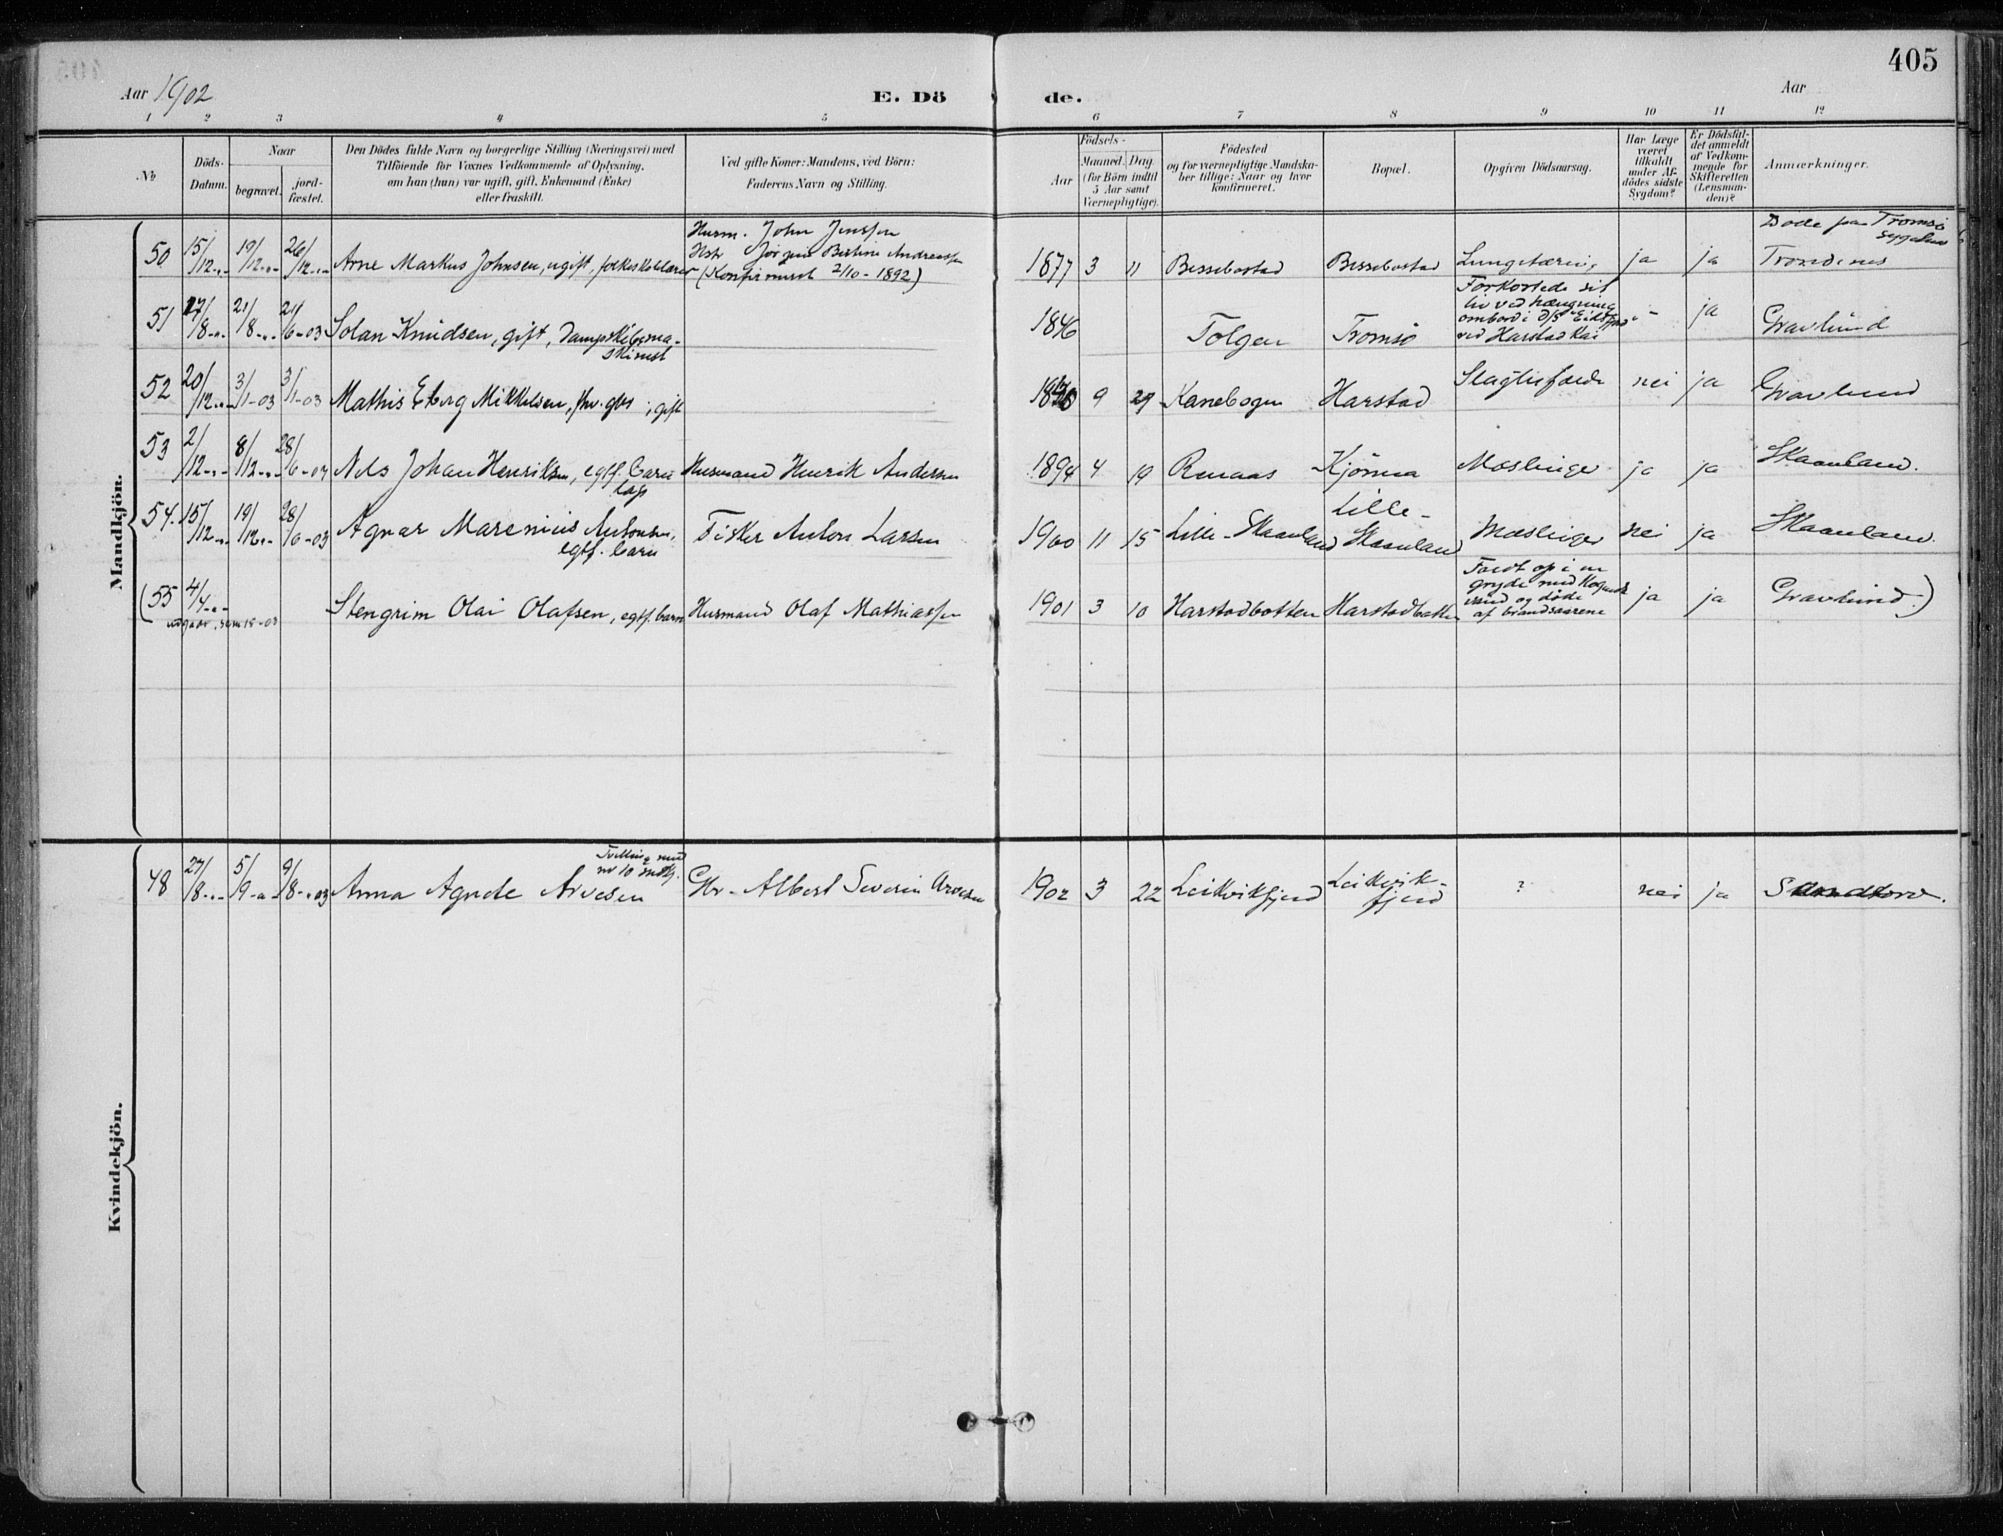 405
Aar 1902
E. Dö de.
Aar
1 2 3 4 5 6 7 8 9 10 11 12
No
Döds-Datum.
Naar
begravet.
jord-fæstet.
Den Dödes fulde Navn og borgerlige Stilling (Næringsvei) med
Tilföiende for Voxnes Vedkommende af Oplysning,
om han (hun) var ugift, gift, Enkemand (Enke)
eller fraskilt.
Ved gifte Koner: Mandens, ved Börn:
Faderens Navn og Stilling.
Födsels-
Aar
Maaned. Dag.
(for Börn indtil
5 Aar samt
Værnepligtige).
Födested
og for værnepligtige Mandska-
ber tillige: Naar og hvor
konfirmeret.
Bopæl.
Opgiven Dödsaarsag.
Har Læge
været
tilkaldt
under Af-
dödes sidste
Sygdom?
Er Dödsfal-
det anmeldt
af Vedkom-
mende for
Skifteretten
(Lensman-
den)?
Anmærkninger.
Mandkjön.
Husm. John Jenssen
Døde paa Tromsø
Sygehus
50 15/12 19/12 26/12 Arne Markus Johnsen, ugift, folkeskolelærer
Hstr Jørgine Bertine Andreassen
(Konfirmeret 2/10-1892)
1877 3 11 Bessebostad Bessebostad Lungetæring ja ja Trondenes
51 17/8 21/8 21/6-03 Solan Knudsen, gift, Dampskibsma-
skinist
1846 Tolgen Tromsø
Forkortede sit
liv ved hængning
ombord i D/S Eidsfjord
ved Harstad Kai
ja Gravlund
52 20/12 3/1-03 3/1-03 Mathis Eberg Mikkelsen, gift
9 29 Kanebogen Harstad Slagtilfælde nei ja Gravlund
53 2/12 8/12 28/6-03 Nils Johan Henriksen, egtf. barn
lap
Husmand Henrik Andersen
1894 4 19 Renaas Kjönna Mæslinger ja ja Skaanland.
54. 15/12 19/12 28/6-03 Agnar Marenius Antonsen,
egtf. barn
Fisker Anton Larsen
1900 11 15 Lille-Skaanland Lille-
Skaanland Mæslinger nei ja Skaanland.
(55 4/4 Stengrim Olai Olafsen, egtf. barn
Husmand Olaf Mathiassen
1901 3 10 Harstadbotten Harstadbotten
Faldt op i en
gryde med kogende
vand og døde
af brandsaarene
ja ja Gravlund)
Kvindekjön.
Tvilling med
nr 10 mdkj.
48 27/8 5/9 9/8-03 Anna Agnete Arvesen
Gbr. Albert Severin Arvesen
1902 3 22 Leikvikfjord Leikvik-
fjord
? nei ja Sandtorv.